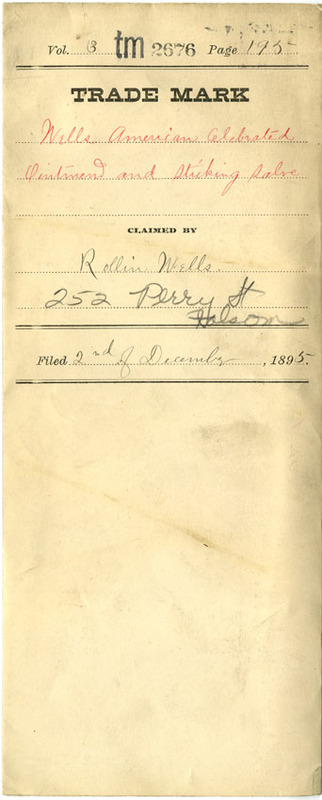 Vol. 3 tm 2676 Page 195
TRADE MARK
Wells American Celebrated
Ointment and Sticking Salve
CLAIMED BY
Rollin Wells.
252 Perry St
Filed 2nd of December, 1895.